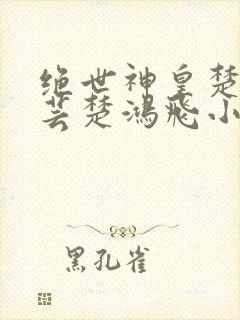 绝世神皇楚
芸楚鸿飛小
黑孔雀